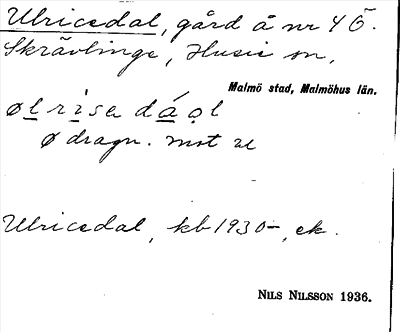 Ulricedal, gård å nr 4 Ö.
Skrävlinge, Husie sn,
Malmö stad, Malmöhus län.
ølrisedáol
ø dragn. mot u
Ulricedal, kb 1930-, ek.
NILS NILSSON 1936.